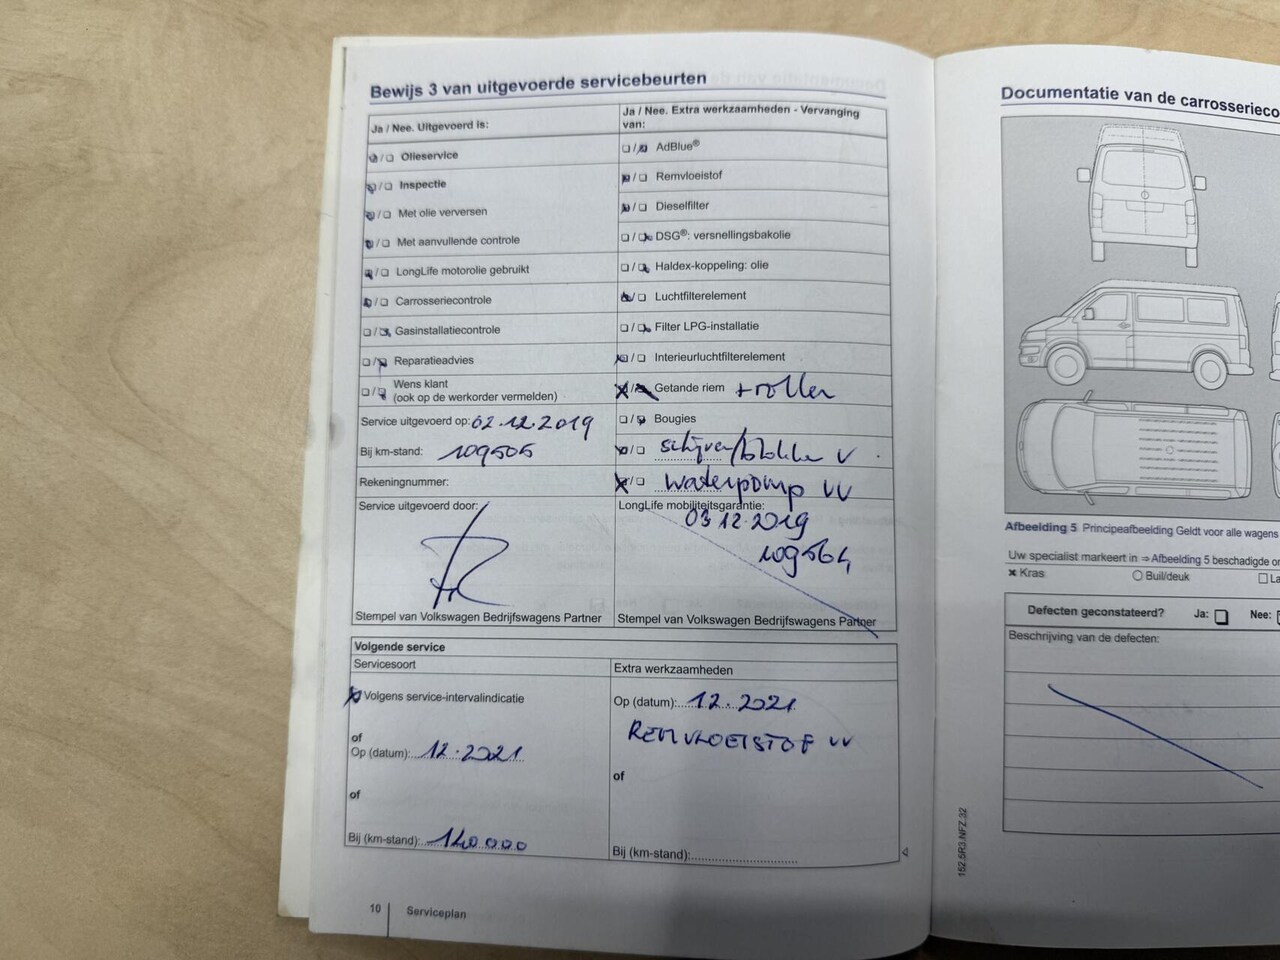 Bewijs 3 van uitgevoerde servicebeurten
Ja / Nee. Uitgevoerd is:
Olieservice
Inspectie
Met olie verversen
Met aanvullende controle
LongLife motorolie gebruikt
Carrosseriecontrole
Gasinstallatiecontrole
Reparatieadvies
Wens klant
(ook op de werkorder vermelden)
Service uitgevoerd op: 02.12.2019
Bij km-stand: 109505
Rekeningnummer:
Service uitgevoerd door:
Stempel van Volkswagen Bedrijfswagens Partner
Ja / Nee. Extra werkzaamheden - Vervanging
van:
AdBlue®
Remvloeistof
Dieselfilter
DSG®: versnellingsbakolie
Haldex-koppeling: olie
Luchtfilterelement
Filter LPG-installatie
Interieurluchtfilterelement
Getande riem + rollen
Bougies
schijven/blokken V
waterpomp VV
LongLife mobiliteitsgarantie:
03.12.2019
109564
Stempel van Volkswagen Bedrijfswagens Partner
Volgende service
Servicesoort
Volgens service-intervalindicatie
of
Op (datum): 12.2021
of
Bij (km-stand): 140000
Extra werkzaamheden
Op (datum): 12.2021
REMVLOEISTOF VV
of
Bij (km-stand):
10
Serviceplan
Documentatie van de carrosserieco
Afbeelding 5 Principeafbeelding Geldt voor alle wagens
Uw specialist markeert in ⇒ Afbeelding 5 beschadigde
Kras
Buil/deuk
La
Defecten geconstateerd? Ja: Nee:
Beschrijving van de defecten:
152.5R3.NFZ.32